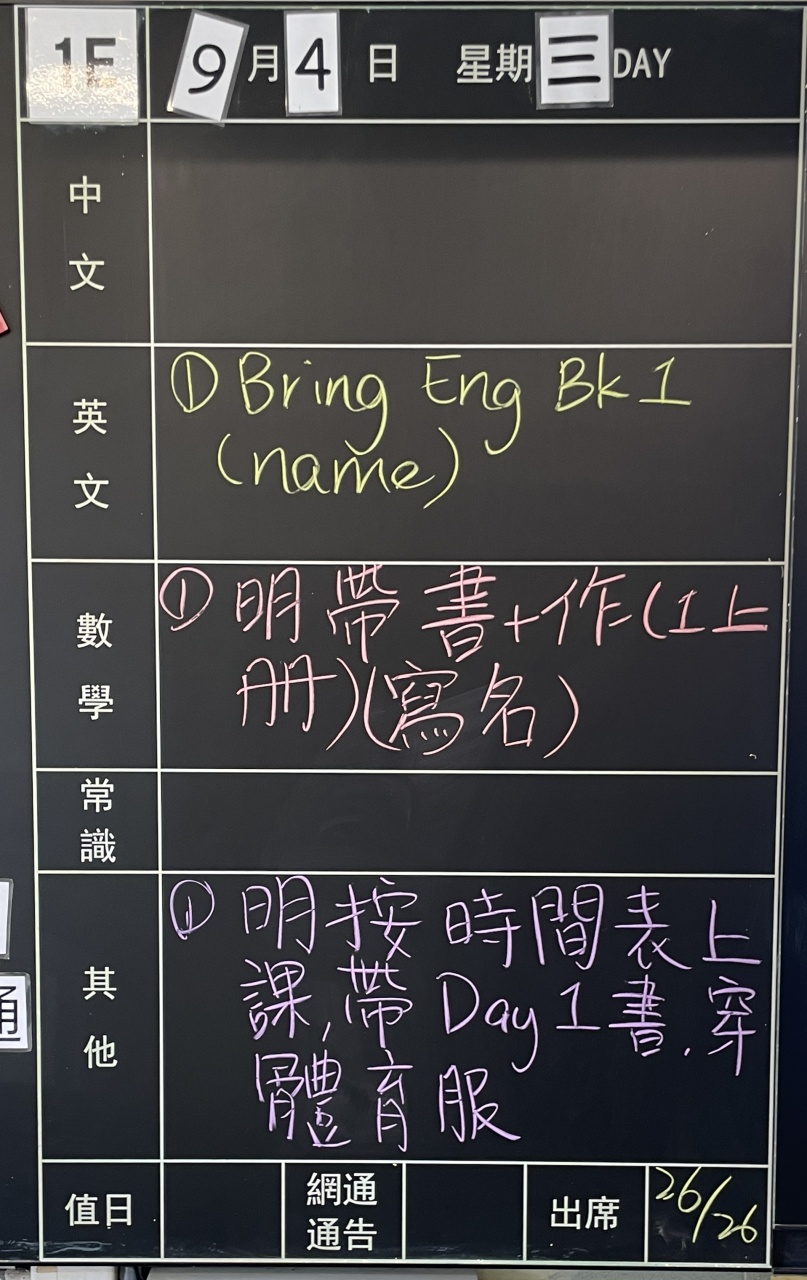 1E 9月4日 星期三DAY
中文
英文
① Bring Eng Bk 1
(name)
數學
① 明帶書+作(1上
冊)(寫名)
常識
其他
① 明按時間表上
課,帶Day 1書,穿
體育服
值日
網通
通告
出席
26/26
通